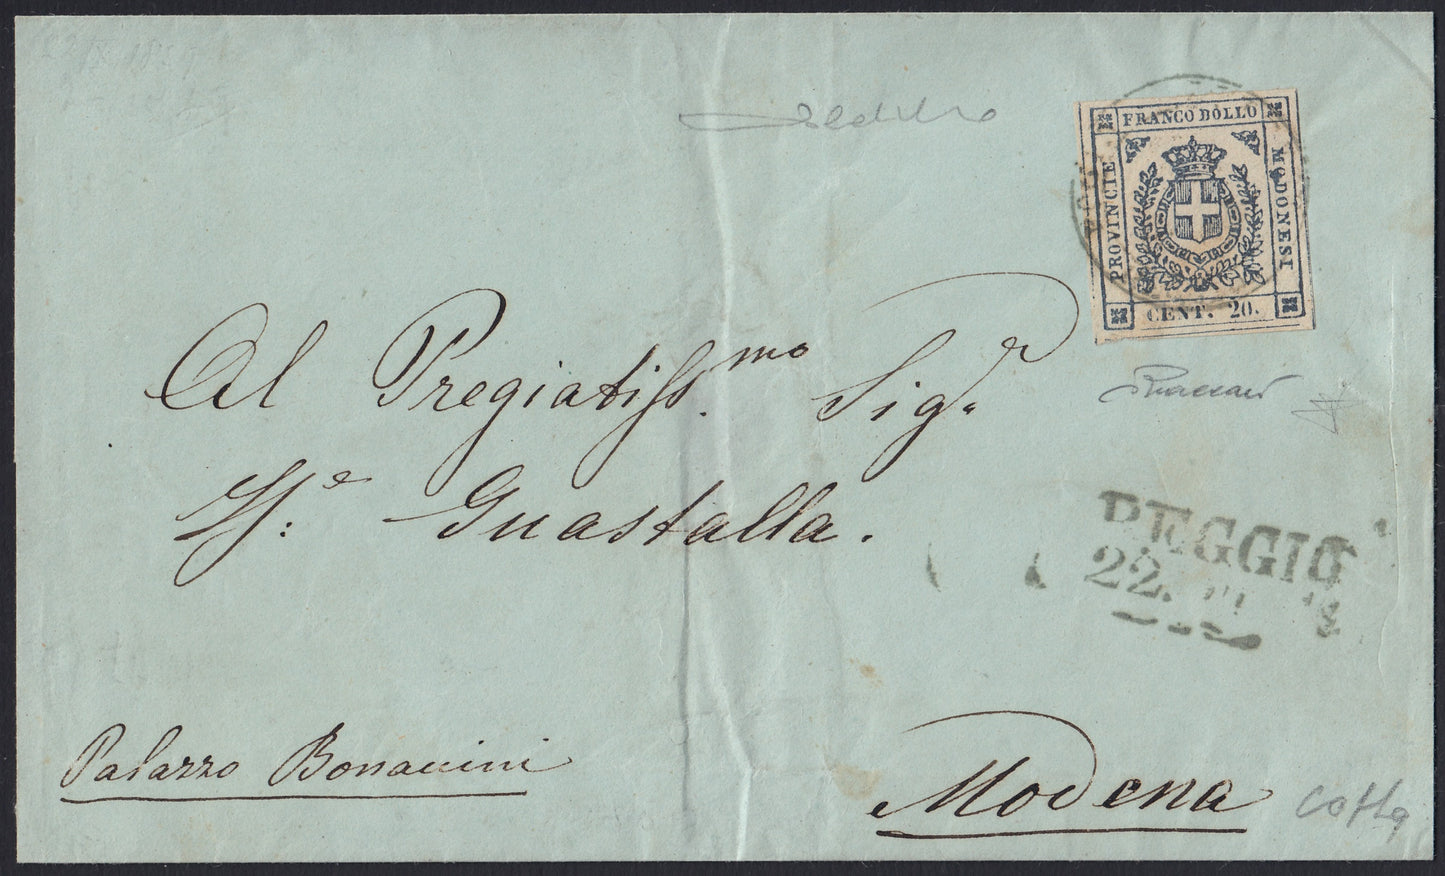 FRANCO BOLLO
PROVINCIE
MODONESI
CENT. 20.
Al Pregiatiss.mo Sig.r
H.e Guastalla.
REGGIO
22.
Palazzo Bonaccini
Modena